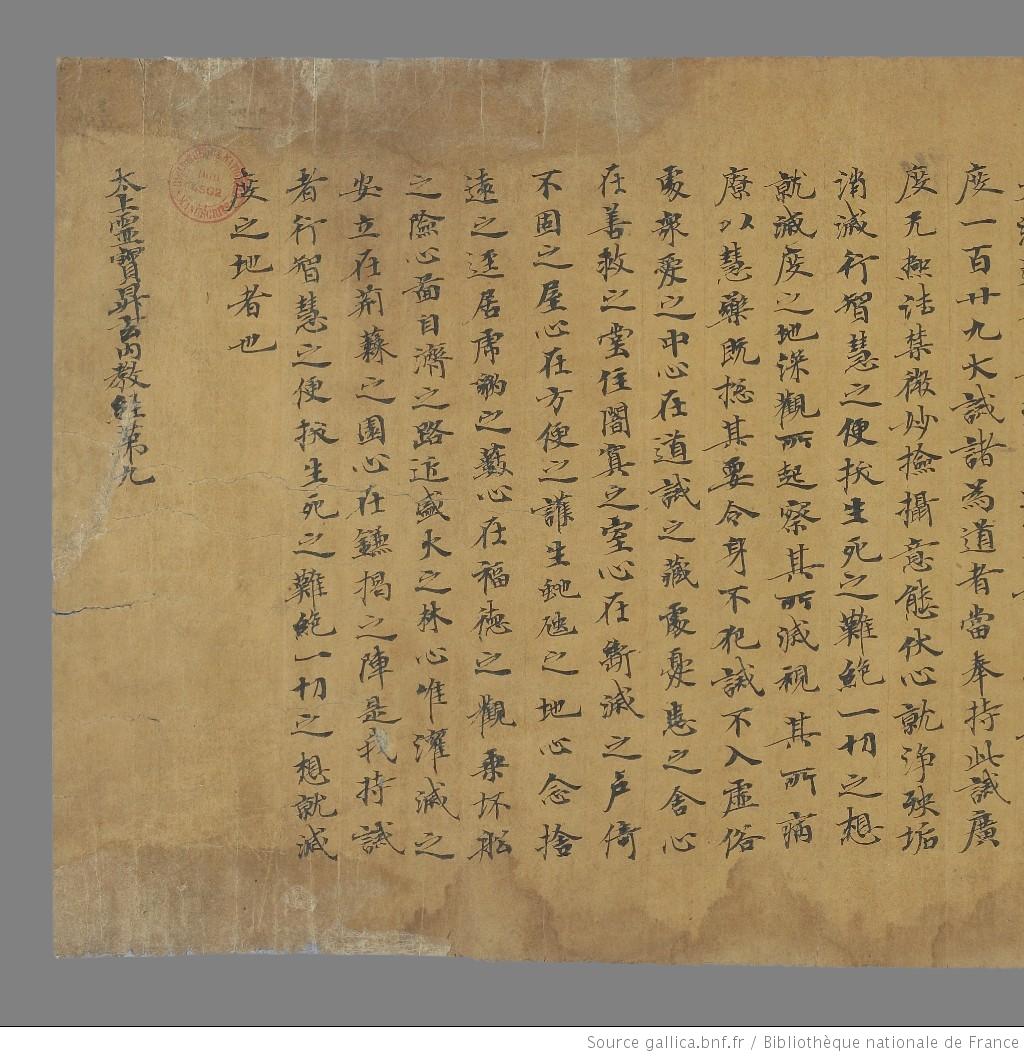 度一百廿九大誡諸為道者當奉持此誡廣
度无極法禁微妙撿攝意態伏心就净殃垢
消滅行智慧之便拔生死之難絶一切之想
就滅度之地深觀所起察其所滅視其所病
療以慧藥既捴其要令身不犯誡不入虛俗
處衆愛之中心在道誡之藏處憂恚之舍心
在善救之堂住闇冥之室心在斷滅之戶倚
不固之屋心在方便之護生虵虺之地心念捨
遠之逕居虎豹之藪心在福德之觀乘坏舩
之險心啚自濟之路近盛火之林心唯濯滅之
安立在荊蕀之園心在鐮揭之陣是我持誡
者行智慧之便拔生死之難絶一切之想就滅
度之地者也
太上靈寶昇玄內教經第九
Source gallica.bnf.fr / Bibliothèque nationale de France